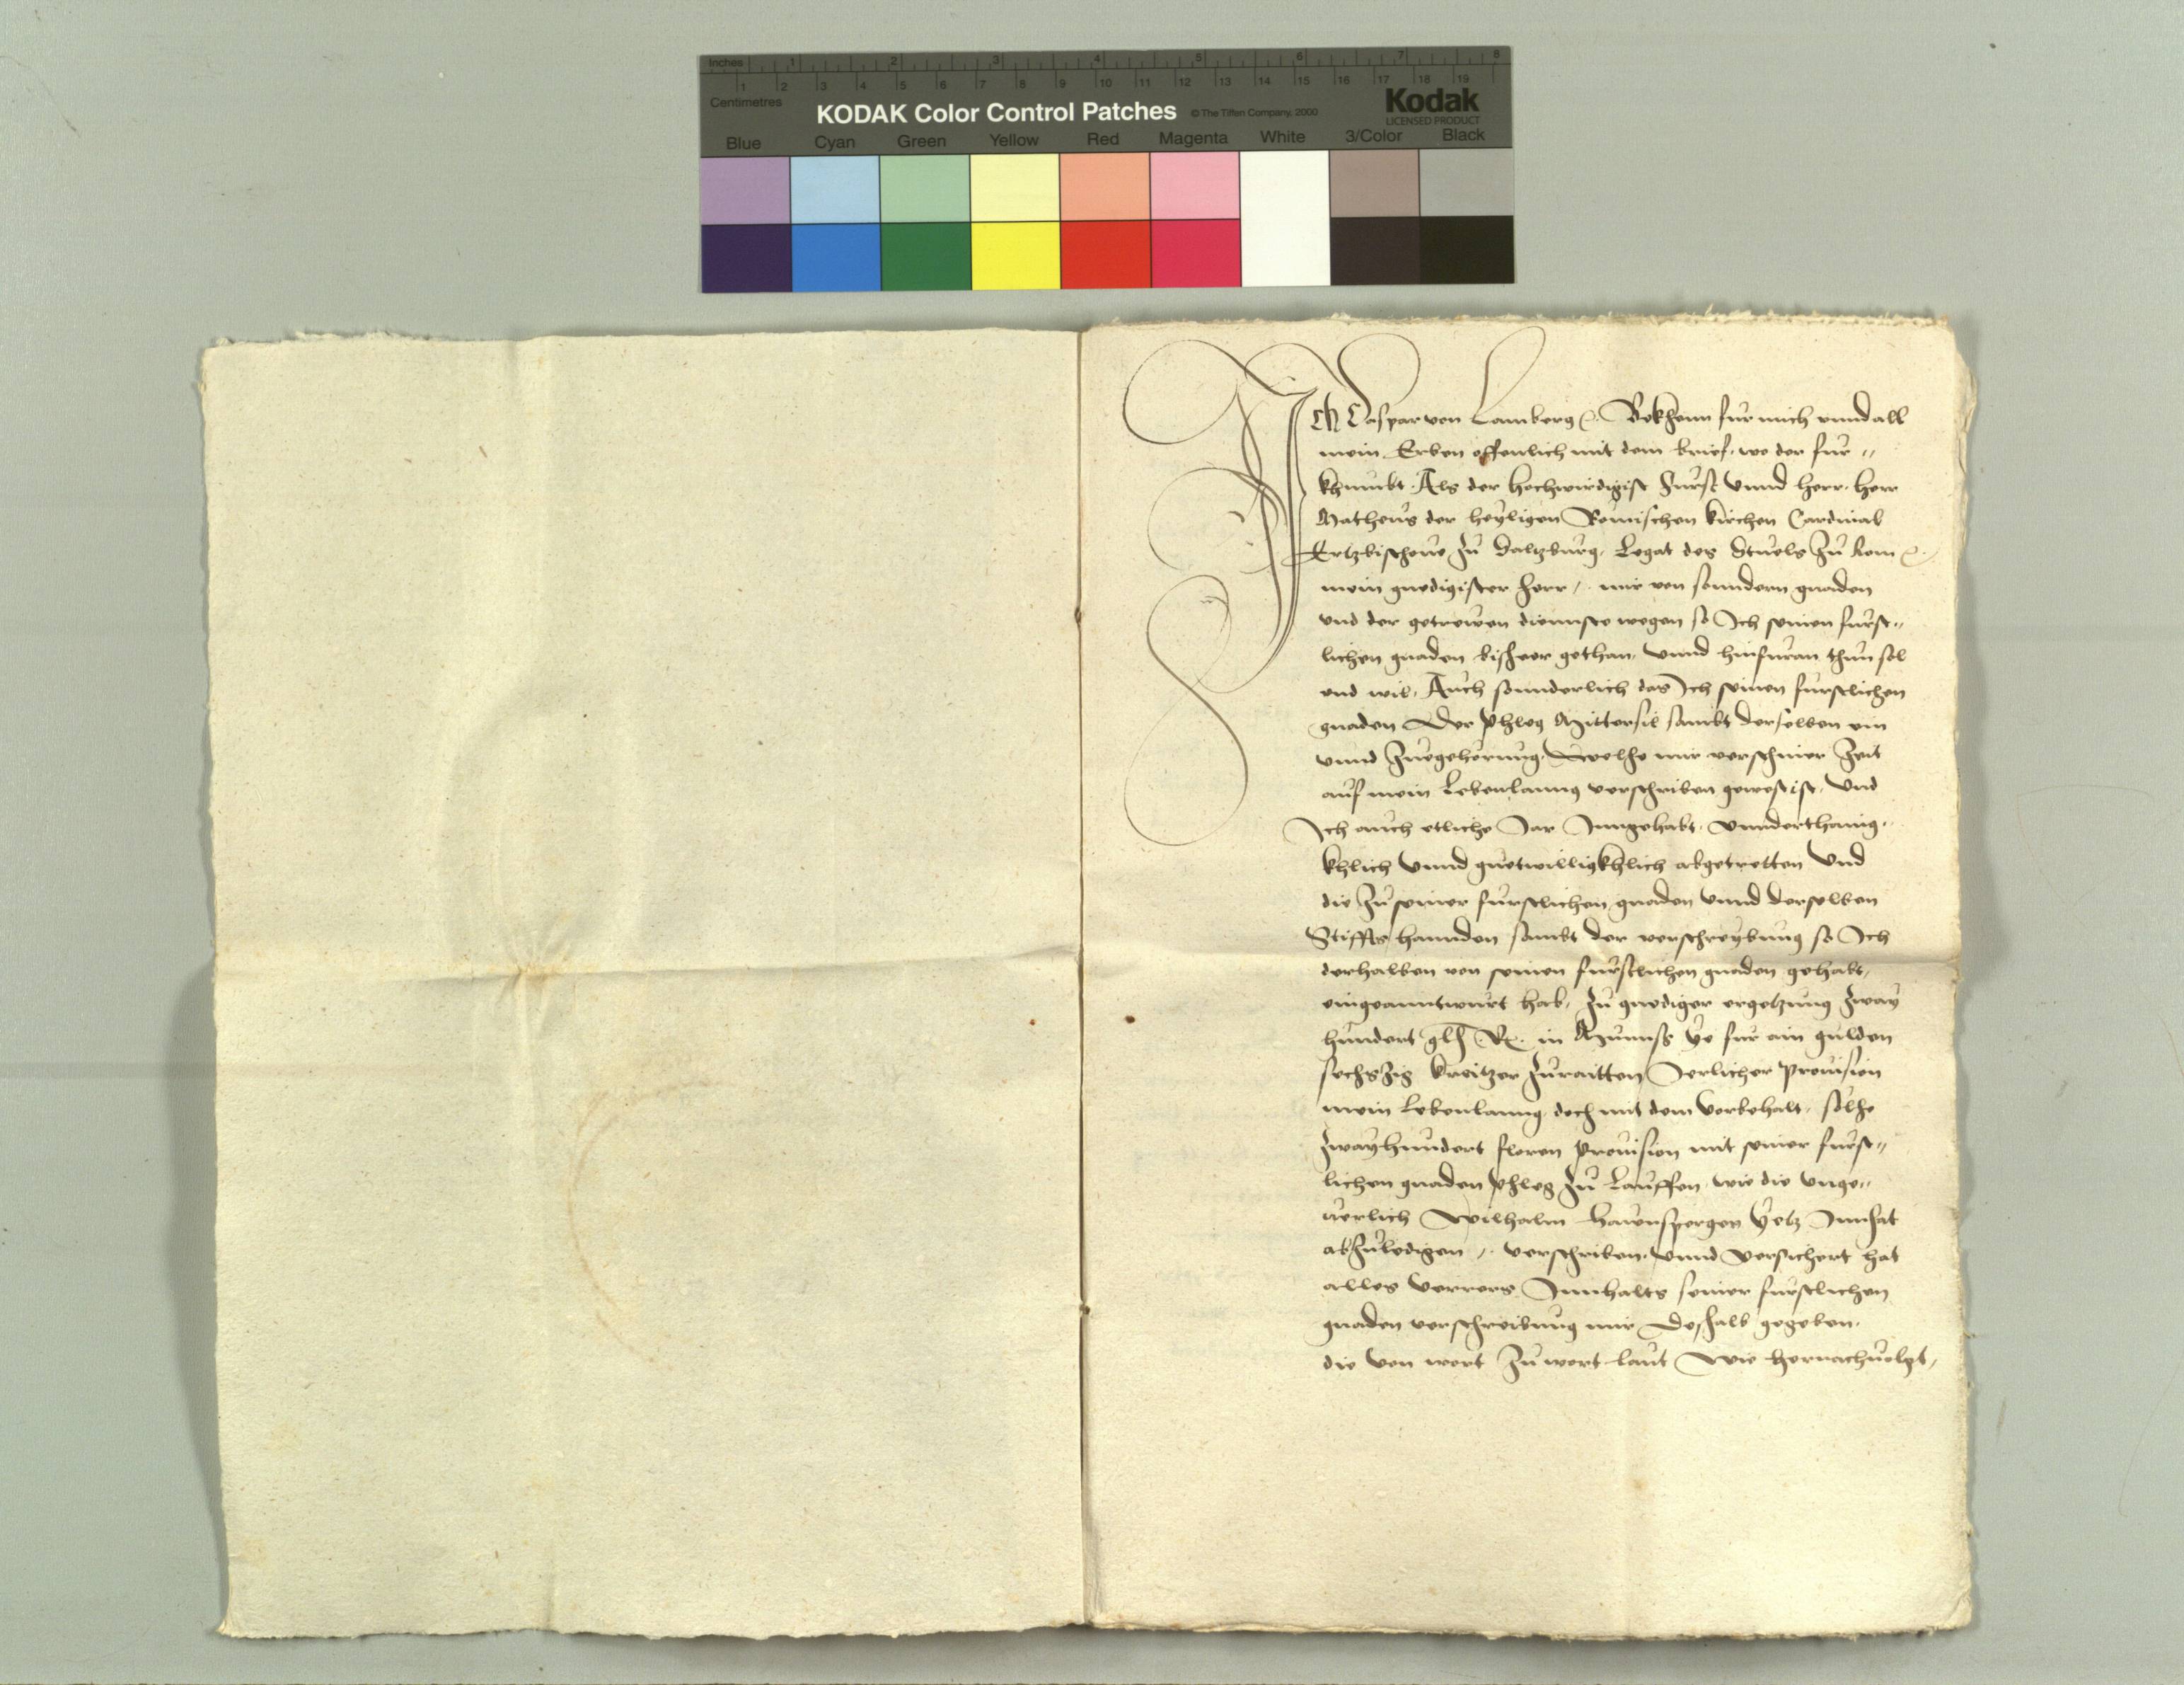 Inches 1 2 3 4 5 6 7 8
1 2 3 4 5 6 7 8 9 10 11 12 13 14 15 16 17 18 19
Centimetres
KODAK Color Control Patches © The Tiffen Company, 2000 Kodak
LICENSED PRODUCT
Blue Cyan Green Yellow Red Magenta White 3/Color Black
Ich Caspar von Lamberg &c. Bekhenn fur mich unnd all
mein Erben offenlich mit dem brief, wo der fur-
khumbt. Als der hochwirdigist Furst unnd herr, herr
Matheus der heyligen Römischen kirchen Cardinal
Ertzbischove zu Saltzburg, Legat des Stuels zu Rom &c.
mein gnedigister herr, mir von sonndern gnaden
und der getrewen diennste wegen so Ich seinen furst-
lichen gnaden bisheer gethan, unnd hinfuran thun sol
und wil, Auch sonnderlich das Ich seinen furstlichen
gnaden der phleg Mittersil sambt derselben ein
unnd zuegehörung, welhe mir verschiner Zeit
auf mein Lebenlanng verschriben gewest ist, und
Ich auch etliche Jar Inngehabt, unnderthanig-
khlich unnd guetwilligkhlich abgetretten und
die zu seiner furstlichen gnaden unnd derselben
Stiffts hannden sambt der verschreybung so Ich
derhalben von seinen furstlichen gnaden gehabt,
eingeanntwurt hab, zu gnediger ergetzung zway
hundert gld R. in Munss ye fur ain gulden
sechszig kreitzer zuraitten Jerlicher provision
mein Lebenlanng doch mit dem vorbehalt, solhe
zwayhundert floren provision mit seiner furst-
lichen gnaden phleg zu Lauffen, wie die unge-
verlich Wilhalm Haunsperger yetz Innhat
abzuledigen, verschriben, unnd versichert hat
alles verrers Innhalts seiner furstlichen
gnaden verschreibung mir deshalb gegeben,
die von wort zu wort laut wie hernachvolgt,